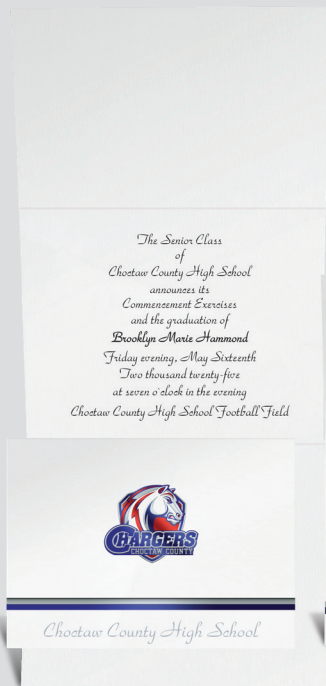 The Senior Class
of
Choctaw County High School
announces its
Commencement Exercises
and the graduation of
Brooklyn Marie Hammond
Friday evening, May Sixteenth
Two thousand twenty-five
at seven o'clock in the evening
Choctaw County High School Football Field
CHARGERS
CHOCTAW COUNTY
Choctaw County High School